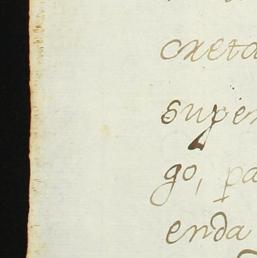 creta
super
go, pa
enda